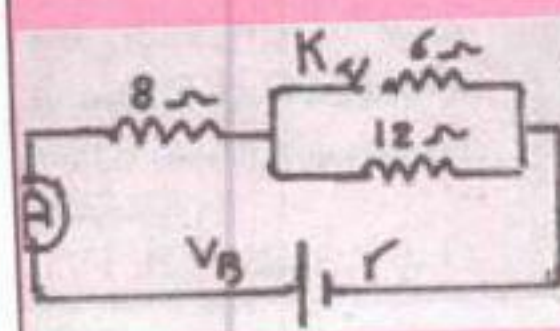 K 6 Ω
8 Ω
12 Ω
A
V_B r